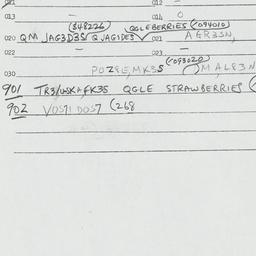 011 — 012 —
013 — 014 0
(348226) QGLEBERRIES (094010)
020 QM JAG3D3S/QJAG1DE3 021 AGR3SN,
022 — 023 —
(093020)
030 POZ8E,MK3S MAL83N
901 TR3/USK+FK3S QGLE STRAWBERRIES (
902 VOS71DOS7 (268